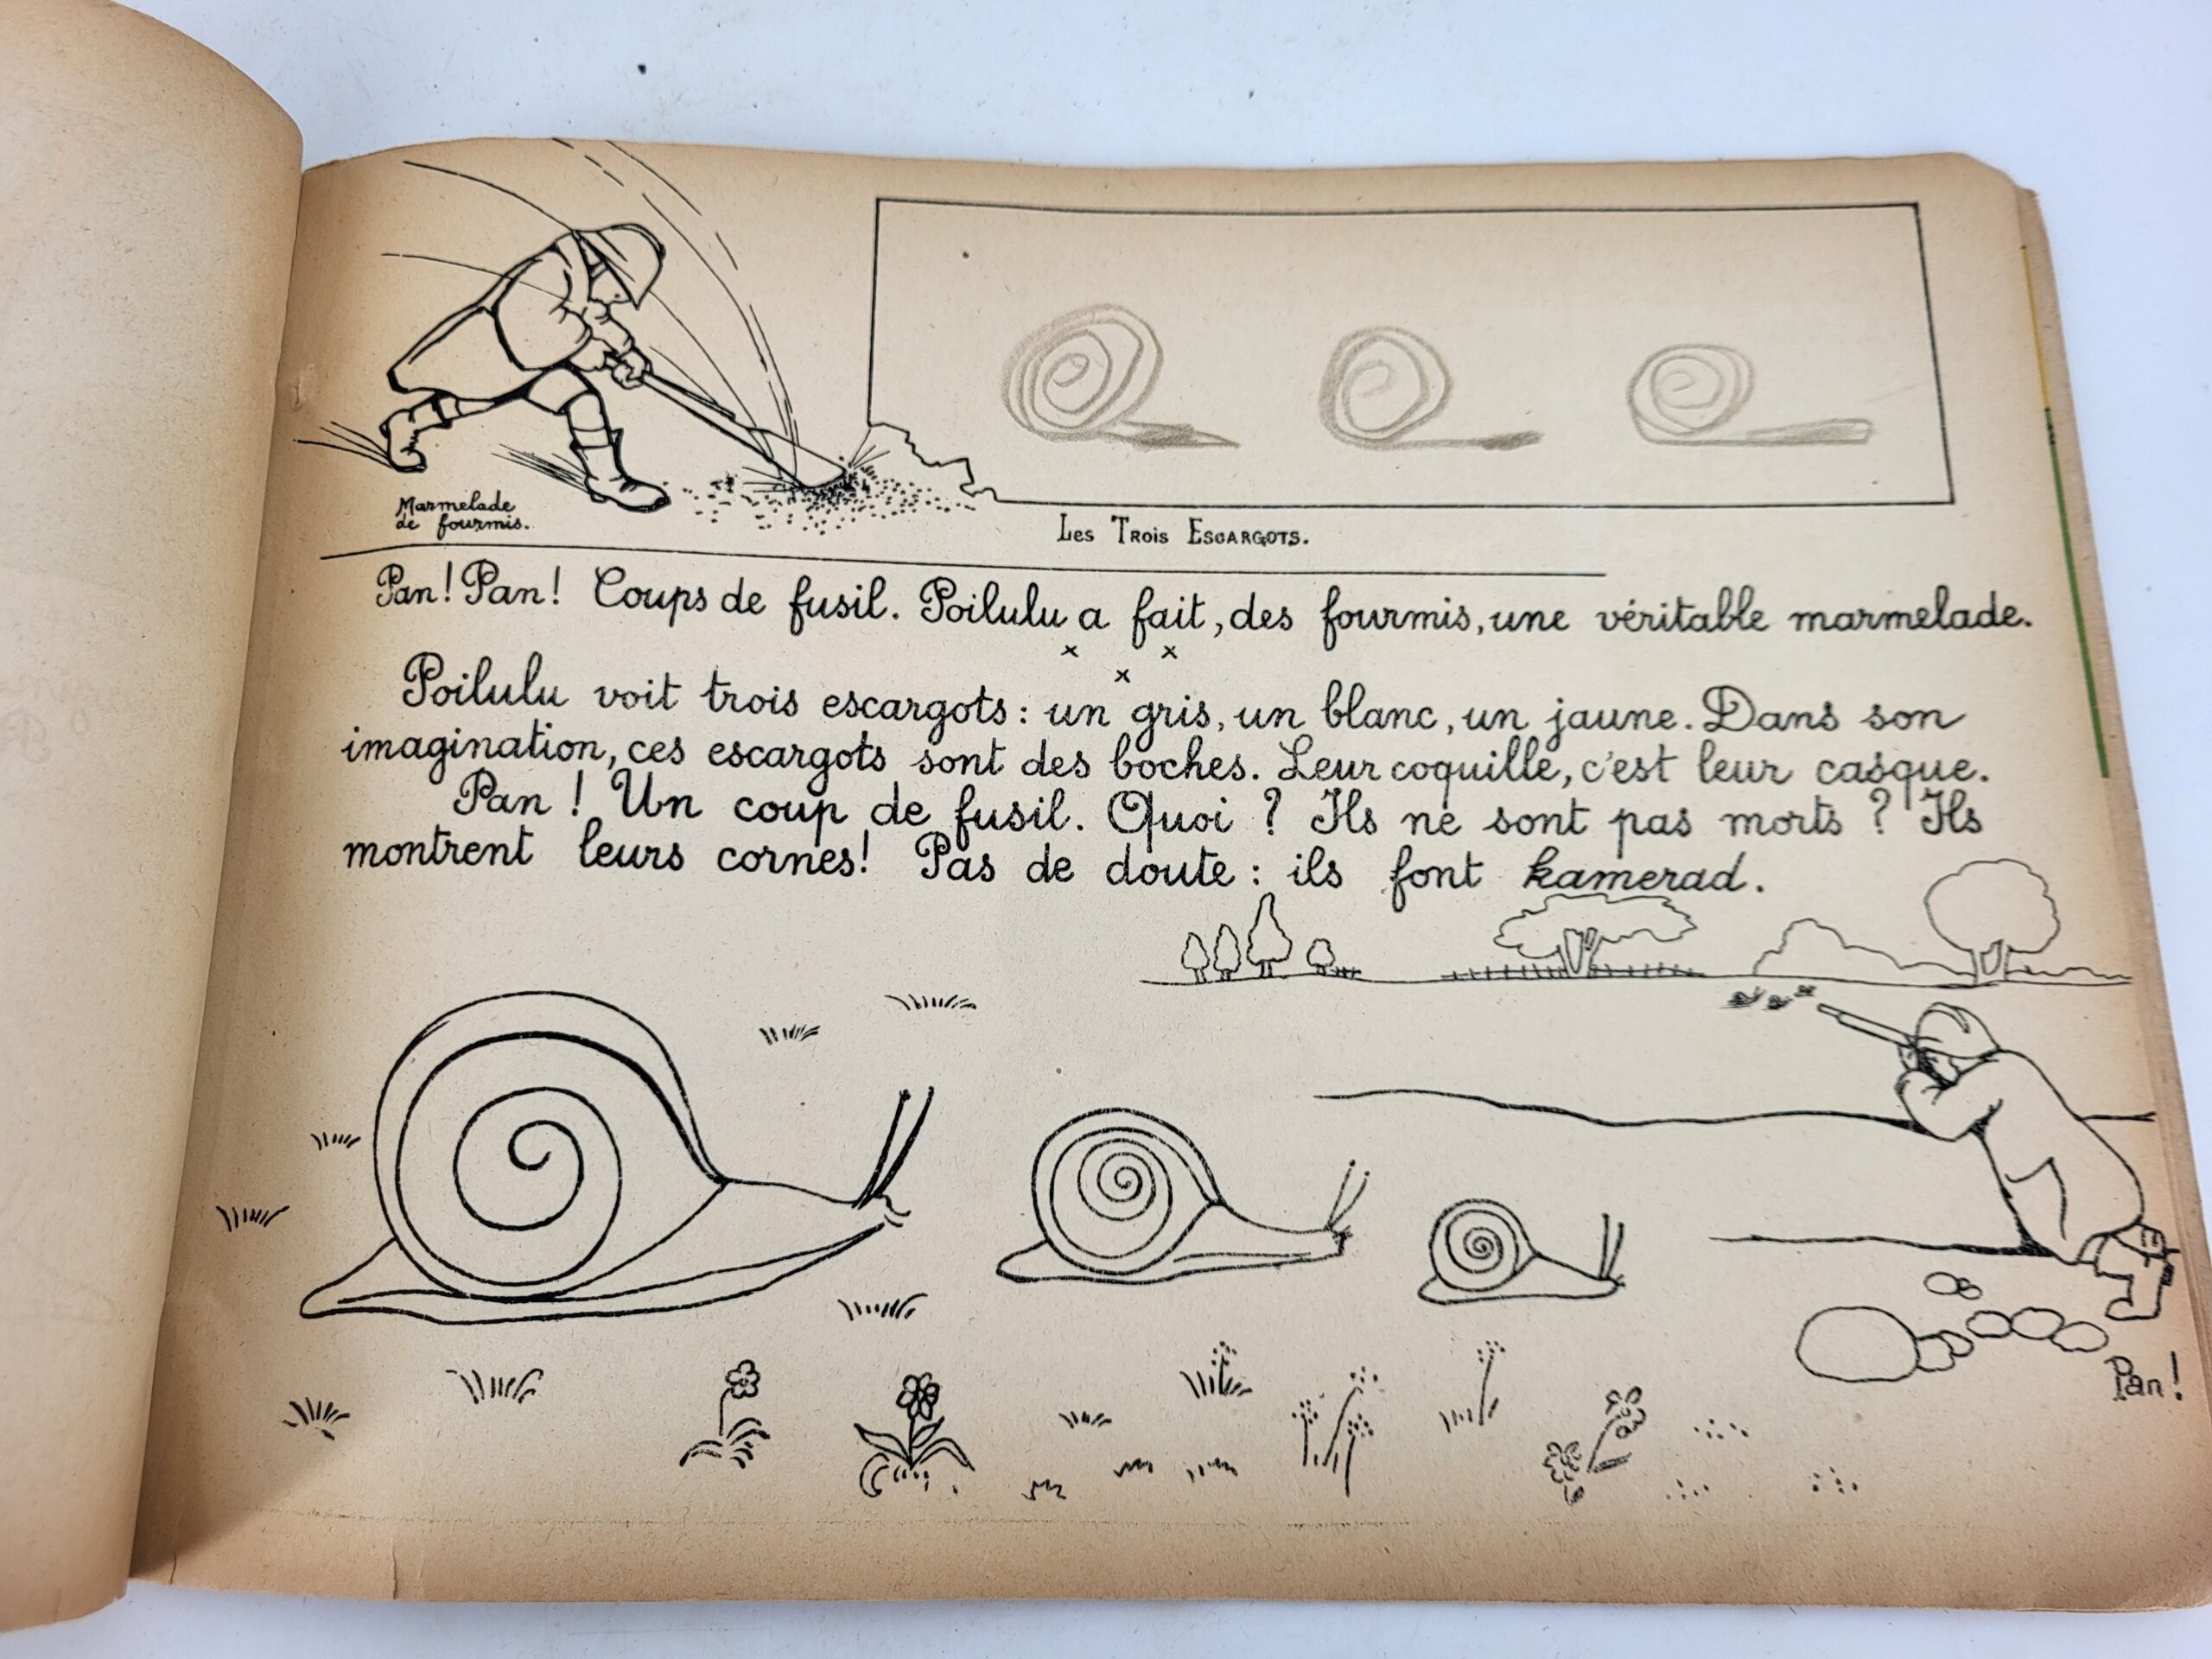 Marmelade
de fourmis.
Les Trois Escargots.
Pan! Pan! Coups de fusil. Poilulu a fait, des fourmis, une véritable marmelade.
x x
x
Poilulu voit trois escargots: un gris, un blanc, un jaune. Dans son
imagination, ces escargots sont des boches. Leur coquille, c'est leur casque.
Pan! Un coup de fusil. Quoi? Ils ne sont pas morts? Ils
montrent leurs cornes! Pas de doute: ils font kamerad.
Pan!